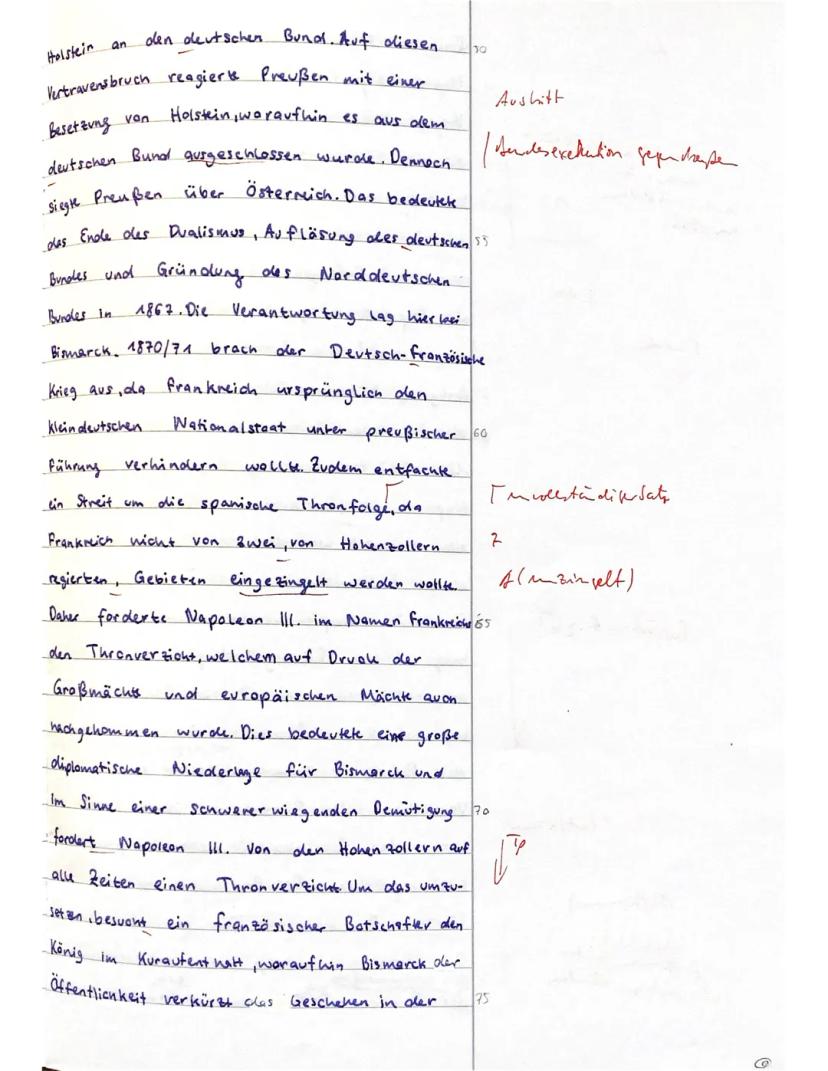 Holstein an den deutschen Bund. Auf diesen 50
Vertrauensbruch reagierte Preußen mit einer
Besetzung von Holstein, woraufhin es aus dem
Austritt
deutschen Bund ausgeschlossen wurde. Dennoch
/ Bundesexekution gegen Preußen
siegte Preußen über Österreich. Das bedeutete
das Ende des Dualismus, Auflösung des deutschen 55
Bundes und Gründung des Norddeutschen
Bundes in 1867. Die Verantwortung lag hier bei
Bismarck. 1870/71 brach der Deutsch-französische
Krieg aus, da Frankreich ursprünglich den
kleindeutschen Nationalstaat unter preußischer 60
Führung verhindern wollte. Zudem entfachte
ein Streit um die spanische Thronfolge, da
Γ unvollständiger Satz
Frankreich nicht von zwei, von Hohenzollern
Z
regierten, Gebieten eingezingelt werden wollte.
A (umzingelt)
Daher forderte Napoleon III. im Namen Frankreichs 65
den Thronverzicht, welchem auf Druck der
Großmächte und europäischen Mächte auch
nachgekommen wurde. Dies bedeutete eine große
diplomatische Niederlage für Bismarck und
im Sinne einer schwerer wiegenden Demütigung 70
fordert Napoleon III. von den Hohenzollern auf
alle Zeiten einen Thronverzicht. Um das umzu-
setzen, besucht ein französischer Botschafter den
König im Kuraufenthalt, woraufhin Bismarck der
Öffentlichkeit verkürzt das Geschehen in der 75